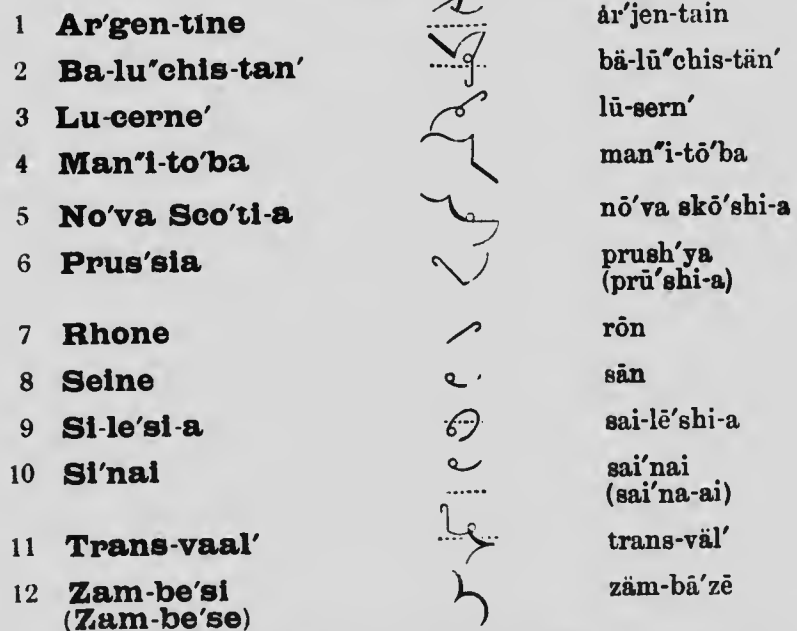 1 Ar′gen-tine år′jen-tain
2 Ba-lu″chis-tan′ bä-lū″chis-tän′
3 Lu-cerne′ lū-sern′
4 Man″i-to′ba man″i-tō′ba
5 No′va Sco′ti-a nō′va skō′shi-a
6 Prus′sia prush′ya
(prū′shi-a)
7 Rhone rōn
8 Seine sān
9 Si-le′si-a sai-lē′shi-a
10 Si′nai sai′nai
(sai′na-ai)
11 Trans-vaal′ trans-väl′
12 Zam-be′si zäm-bā′zē
(Zam-be′se)